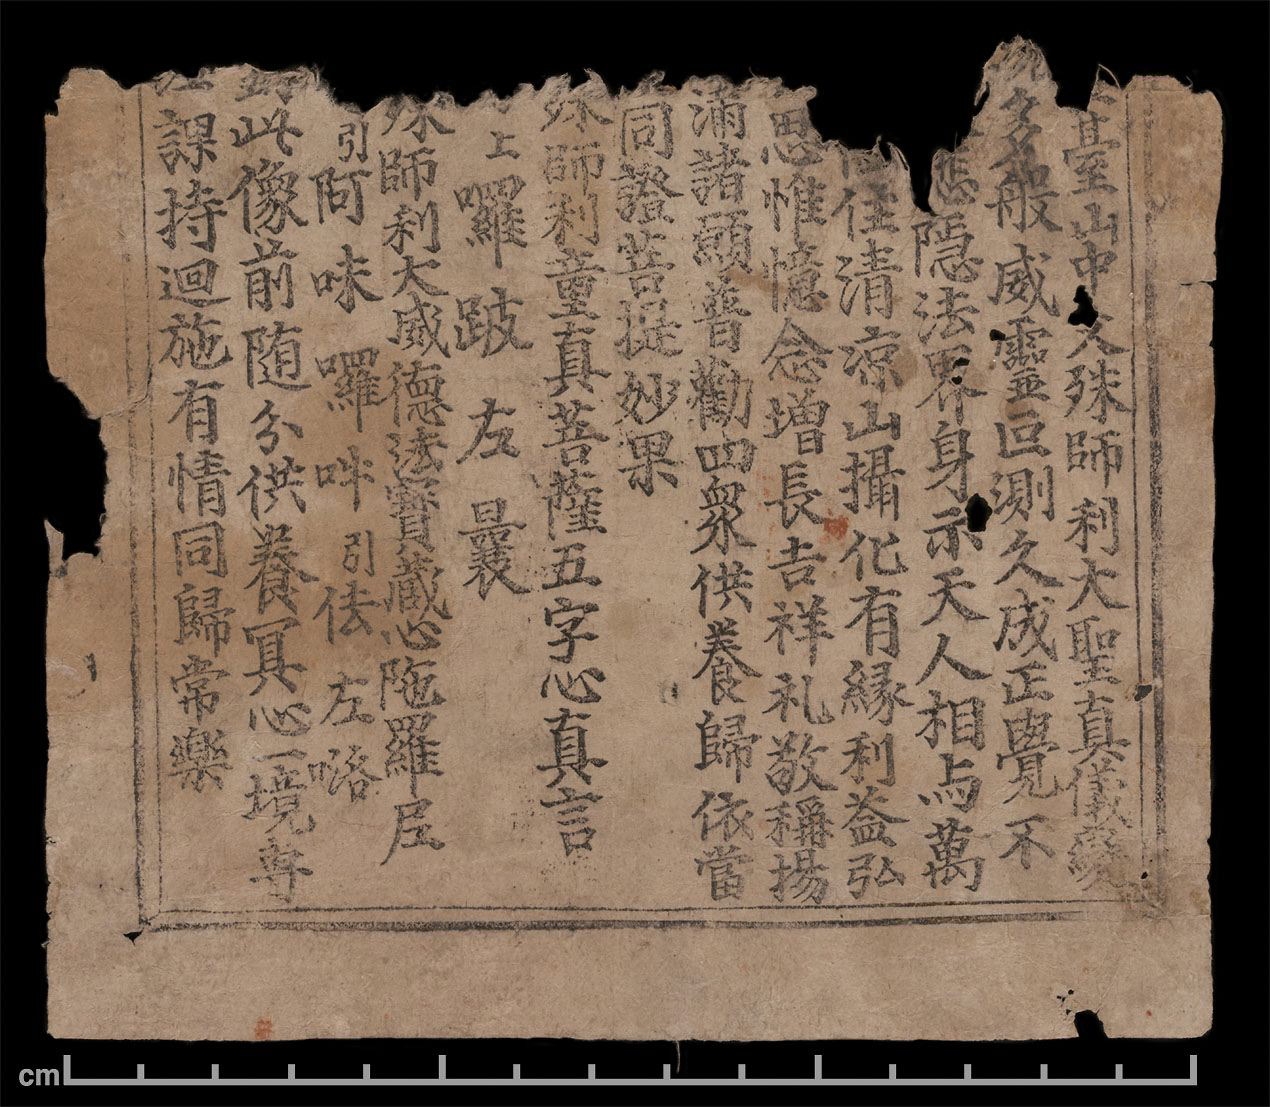 臺山中文殊師利大聖真儀變
現多般威靈叵測久成正覺不
悲隱法界身示天人相与萬
住清涼山攝化有緣利益弘
思惟憶念增長吉祥礼敬稱揚
滿諸願普勸四衆供養歸依當
同證菩提妙果
殊師利童真菩薩五字心真言
上囉跛左曩
殊師利大威德法寶藏心陁羅尼
引阿味囉𤙖引佉左𠸪
對此像前随分供養冥心一境專
課持迴施有情同歸常樂